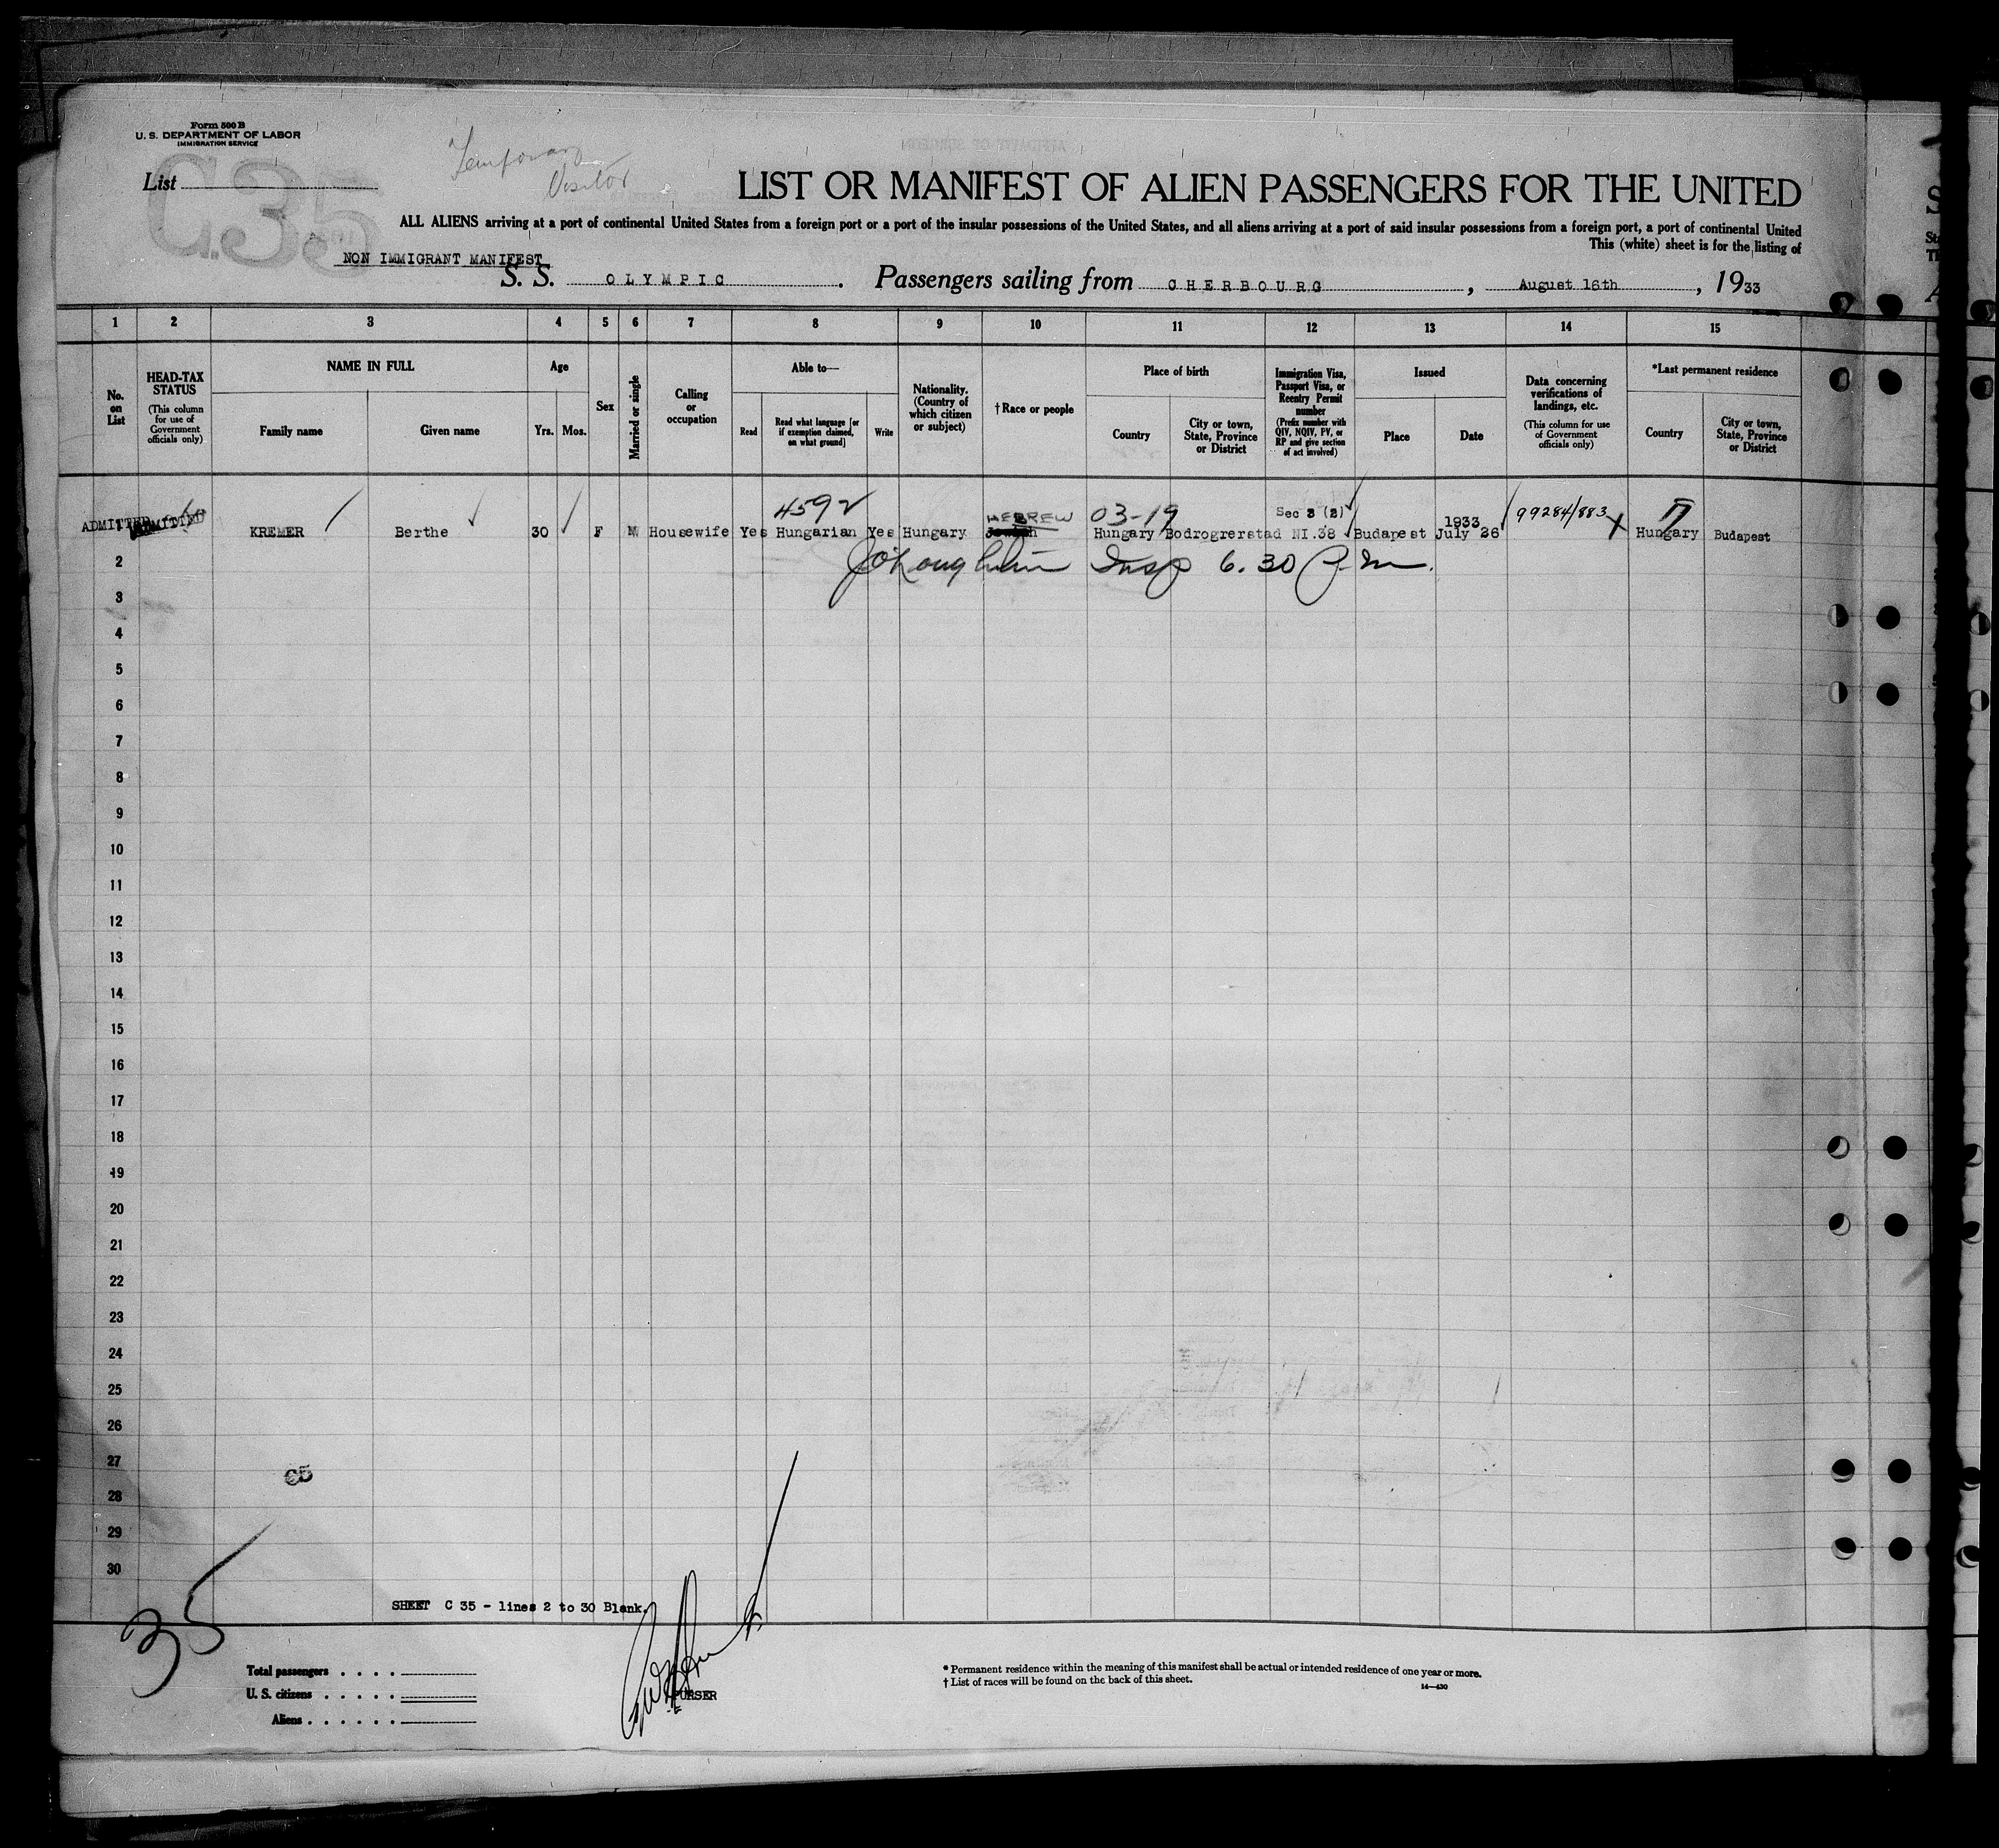 Form 500 B
U. S. DEPARTMENT OF LABOR
IMMIGRATION SERVICE
C.35
List
Temporary
Visitor
LIST OR MANIFEST OF ALIEN PASSENGERS FOR THE UNITED
ALL ALIENS arriving at a port of continental United States from a foreign port or a port of the insular possessions of the United States, and all aliens arriving at a port of said insular possessions from a foreign port, a port of continental United
This (white) sheet is for the listing of
NON IMMIGRANT MANIFEST
S. S. OLYMPIC. Passengers sailing from CHERBOURG, August 16th, 1933
1 2 3 4 5 6 7 8 9 10 11 12 13 14 15
No. on List
HEAD-TAX STATUS
(This column for use of Government officials only)
NAME IN FULL
Family name
Given name
Age
Yrs.
Mos.
Sex
Married or single
Calling or occupation
Able to—
Read
Read what language [or if exemption claimed, on what ground]
Write
Nationality. (Country of which citizen or subject)
†Race or people
Place of birth
Country
City or town, State, Province or District
Immigration Visa, Passport Visa, or Reentry Permit number
(Prefix number with QIV, NQIV, PV, or RP and give section of act involved)
Issued
Place
Date
Data concerning verifications of landings, etc.
(This column for use of Government officials only)
*Last permanent residence
Country
City or town, State, Province or District
4592 HEBREW 03-19 Sec 3 (2) 1933 99284/883
ADMITTED 1 ADMITTED KREMER Berthe 30 F M Housewife Yes Hungarian Yes Hungary Jewish Hungary Bodrogrerstad NI.38 Budapest July 26 X Hungary Budapest
2 Insp 6.30 P.M.
3
4
5
6
7
8
9
10
11
12
13
14
15
16
17
18
19
20
21
22
23
24
25
26
27
C5
28
29
30
SHEET C 35 - lines 2 to 30 Blank.
35
Total passengers . . . .
U. S. citizens . . . . .
Aliens . . . . . .
PURSER
* Permanent residence within the meaning of this manifest shall be actual or intended residence of one year or more.
† List of races will be found on the back of this sheet.
14—430